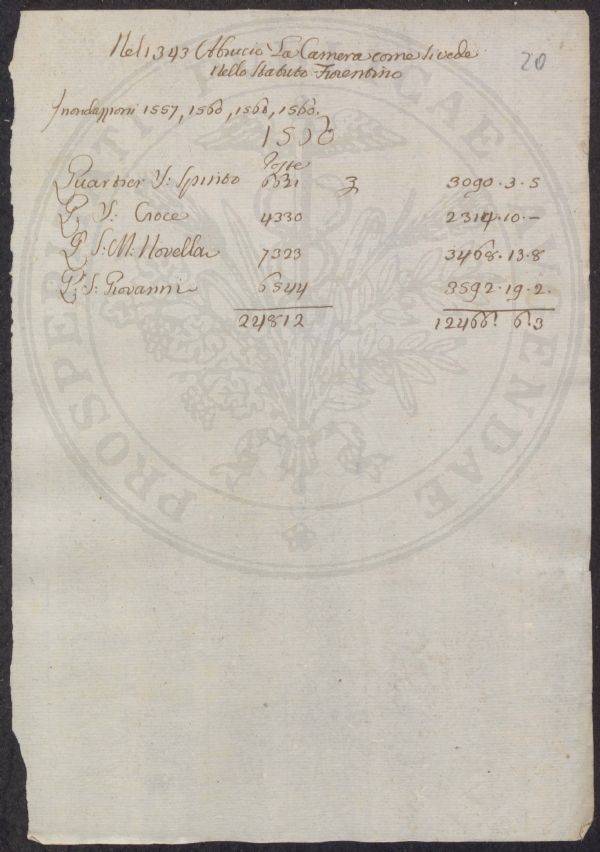 20
Nel 1343 Abrucio La Camera come si vede
nello Statuto Fiorentino
Inondazzioni 1557, 1560, 1560, 1560.
Poste
Quartier S: Spirito 3 3090.3.5
Q. S: Croce 4330 2314.10.–
Q. S: M: Novella 7323 3468.13.8
Q. S: Giovanni 6544 3592.19.2.
24812 12466. 6.3
PROSPERITATI PUBLICAE AUGENDAE